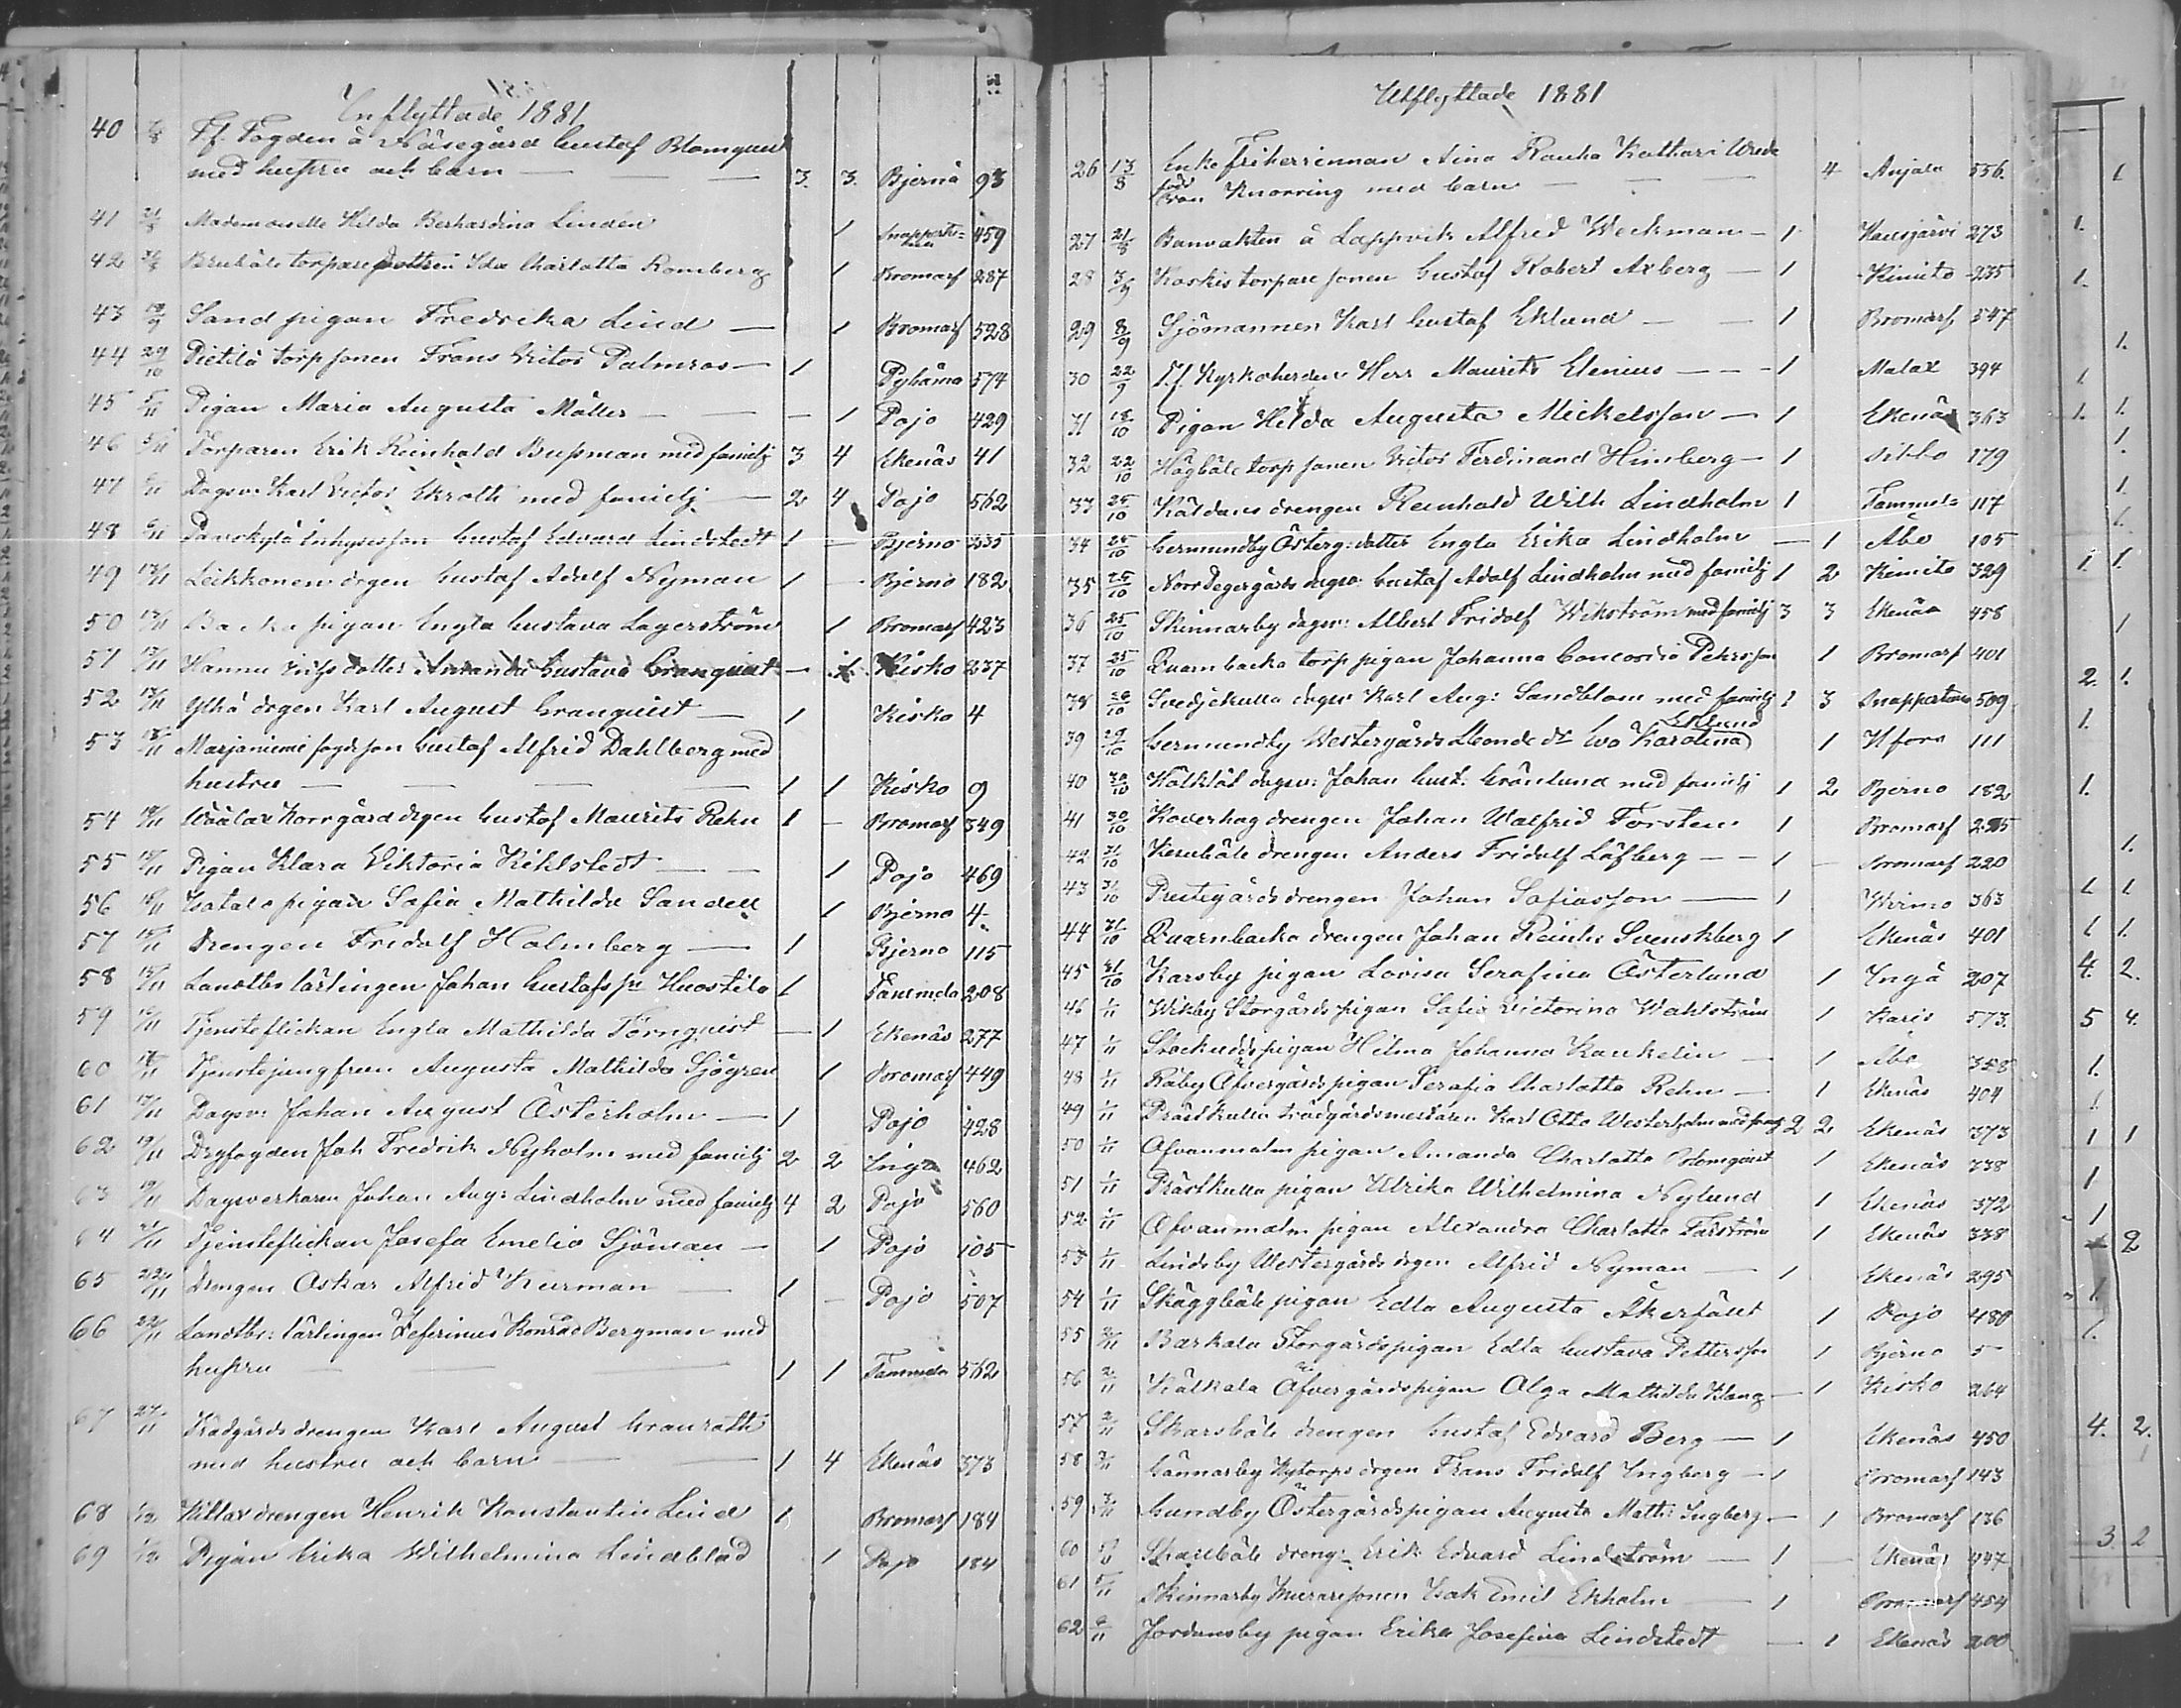 Inflyttade 1881
40 Ff. Fogden å Näsegård Gustaf Blomquist
med hustru och barn — — 3. 3. Bjernå 93
41 Mademoiselle Hilda Berhardina Lindén 1 Snappertuna 459
42 torpare dottren Ida Charlotta Romberg 1 Bromarf 287
43 Sand pigan Fredrika Lind — 1 Bromarf 528
44 29/10 Pietilä torp sonen Frans Victor Palmroos — 1 Pyhäma 574
45 5/11 Pigan Maria Augusta Möller — — 1 Pojo 429
46 5/11 Torparen Erik Reinhold Bussman med familj 3 4 Ekenäs 41
47 Dagsv: Karl Victor Ekroth med familj — 2 4 Pojo 562
48 Danskylä Inhysesson Gustaf Edvard Lindstedt 1 — Bjerno 235
49 13/11 Leikkonen drgen Gustaf Adolf Nyman 1 — Bjerno 182
50 13/11 Backa pigan Engla Gustava Lagerström 1 Bromarf 423
51 13/11 Hannu dotter Amanda Gustava Granquist — 1 Kisko 237
52 13/11 Yltä drgen Karl August Granquist — 1 Kisko 4
53 Marjaniemi son Gustaf Alfrid Dahlberg med
hustru — — — 1 1 Kisko 9
54 Norrgård drgen Gustaf Maurits Rehn 1 — Bromarf 349
55 15/11 Pigan Klara Viktoria Kihlstedt — — 1 Pojo 469
56 pigan Sofia Mathilda Sandell 1 Bjerno 4
57 15/11 Drengen Fridolf Holmberg — 1 Bjerno 115
58 15/11 Landtbr lärlingen Johan Gustafs sn Huostila 1 208
59 Tjensteflickan Engla Mathilda Törnquist — 1 Ekenäs 277
60 Tjenstejungfrun Augusta Mathilda Sjögren 1 Bromarf 449
61 Dagsv: Johan August Österholm — 1 Pojo 428
62 19/11 Joh Fredrik Nyholm med familj 2 2 Ingå 462
63 19/11 Dagsverkaren Johan Aug: Lindholm med familj 4 2 Pojo 560
64 21/11 Tjensteflickan Josefa Emelia Sjöman — 1 Pojo 105
65 22/11 Drengen Oskar Alfrid Kurman — 1 — Pojo 507
66 22/11 Landtbr: lärlingen Zeferinus Konrad Bergman med
hustru — — — 1 1 Tammela 562
67 27/11 Trädgårds drengen Karl August Granroth
med hustru och barn — — 1 4 Ekenäs 373
68 1/12 drengen Henrik Konstantin Lind 1 Bromarf 184
69 1/12 Pigan Erika Wilhelmina Lindblad 1 Pojo 184
Utflyttade 1881
26 13/8 Enke Friherrinnan Aina Rauha Wrede
född von Knorring med barn — — 4 Anjala 556.
27 21/8 Banvakten å Lappvik Alfred Weckman — 1 Hausjärvi 273
28 3/9 Koskis torpare sonen Gustaf Robert Axberg — 1 Kimito 235
29 8/9 Sjömannen Karl Gustaf Eklund — — 1 Bromarf 547
30 22/9 Ff. Kyrkoherden Herr Maurits Elenius — — 1 Malax 394
31 18/10 Pigan Hilda Augusta Mickelsson — 1 Ekenäs 363
32 22/10 Högbåle torp sonen Victor Ferdinand Himberg — 1 Sibbo 179
33 25/10 drengen Reinhold Wilh Lindholm 1 Tammela 117
34 25/10 Germundby Österg: dotter Engla Erika Lindholm — 1 Åbo 105
35 25/10 Norr Degergårds dagsv: Gustaf Adolf Lindholm med familj 1 2 Kimito 329
36 25/10 Skinnarby dagsv: Albert Fridolf Wikström med familj 3 3 Ekenäs 458
37 25/10 Quarnbacka torp pigan Johanna Concordia Pehrsson 1 Bromarf 401
38 Svedjekulla dagsv Karl Aug: Sandblom med familj 1 3 Snappertuna 509
Eklund
39 29/10 Germundby Westergårds dr Eva Karolina 1 Hfors 111
40 30/10 dagsv: Johan Gust. Grönlund med familj 1 2 Bjerno 182
41 30/10 Koverhag drengen Johan Walfrid Forstén 1 Bromarf
42 31/10 drengen Anders Fridolf Löfberg — — 1 — Bromarf 220
43 31/10 Prestgårds drengen Johan Sofiasson — 1 Wirmo 363
44 31/10 Quarnbacka drengen Johan Reinh: Svenskberg 1 Ekenäs 401
45 31/10 Karsby pigan Lovisa Serafina Österlund 1 Ingå 207
46 1/11 Wikby Storgårds pigan Sofia Victorina Wahlström 1 Karis 573.
47 1/11 pigan Hilma Johanna Kaukelin — 1 Åbo 358
48 1/11 Råby Öfvergårds pigan Serafia Charlotta Rehn — 1 Ekenäs 404
49 1/11 Prästkulla trädgårdsmestaren Karl Otto Westerholm med familj 2 2 Ekenäs 373
50 1/11 Ofvanmalm pigan Amanda Charlotta Blomqvist 1 Ekenäs 338
51 1/11 Prästkulla pigan Ulrika Wilhelmina Nylund 1 Ekenäs 372
52 1/11 Ofvanmalm pigan Alexandra Charlotta 1 Ekenäs 338
53 1/11 Lindsby Westergårds drgen Alfrid Nyman — 1 Ekenäs 295
54 1/11 Skäggbåle pigan Edla Augusta Åkerfält 1 Pojo 480
55 2/11 Storgårdspigan Edla Gustava Pettersson 1 Bjerno 5
56 2/11 Kälkala Öfvergårdspigan Olga Mathilda Klang — 1 Kisko 264
57 2/11 Skarsbåle drengen Gustaf Edvard Berg — 1 Ekenäs 450
58 Gännarby Nytorps drgen Frans Fridolf Engberg — 1 Bromarf 143
59 3/11 Gundby Östergårdspigan Augusta Math: Engberg — 1 Bromarf 136
60 dreng: Erik Edvard Lindström — 1 — Ekenäs 447
61 5/11 Skinnarby Muraresonen Isak Emil Ekholm — 1 Bromarf 454
62 6/11 Jordansby pigan Erika Josefina Lindstedt — 1 Ekenäs 200